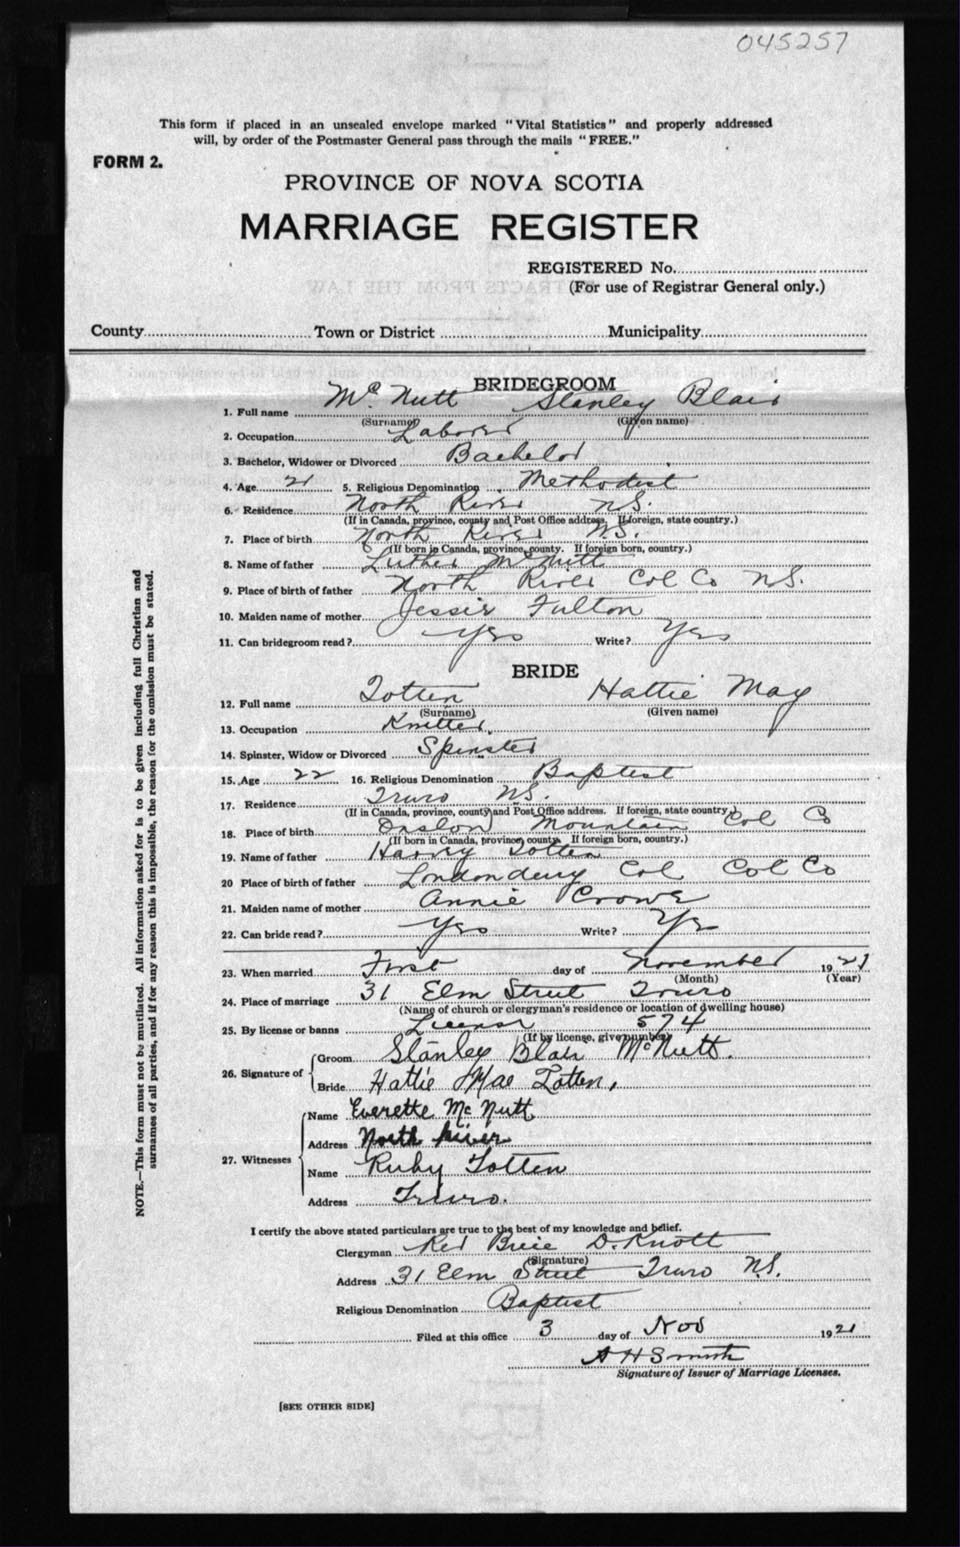 045257
This form if placed in an unsealed envelope marked "Vital Statistics" and properly addressed
will, by order of the Postmaster General pass through the mails "FREE."
FORM 2.
PROVINCE OF NOVA SCOTIA
MARRIAGE REGISTER
REGISTERED No.
(For use of Registrar General only.)
County Town or District Municipality
BRIDEGROOM
1. Full name McNutt Stanley Blair
(Surname) (Given name)
2. Occupation Laborer
3. Bachelor, Widower or Divorced Bachelor
4. Age 21 5. Religious Denomination Methodist
6. Residence North River N.S.
(If in Canada, province, county and Post Office address. If foreign, state country.)
7. Place of birth North River N.S.
(If born in Canada, province, county. If foreign born, country.)
8. Name of father Luther McNutt
9. Place of birth of father North River Col Co N.S.
10. Maiden name of mother Jessie Fulton
11. Can bridegroom read? Yes Write? Yes
BRIDE
12. Full name Totten Hattie May
(Surname) (Given name)
13. Occupation Knitter
14. Spinster, Widow or Divorced Spinster
15. Age 22 16. Religious Denomination Baptist
17. Residence Truro N.S.
(If in Canada, province, county and Post Office address. If foreign, state country.)
18. Place of birth Onslow Mountain Col Co
(If born in Canada, province, county. If foreign born, country.)
19. Name of father Harry Totten
20 Place of birth of father Londonderry Col Col Co
21. Maiden name of mother Annie Crowe
22. Can bride read? Yes Write? Yes
23. When married First day of November 1921
(Month) (Year)
24. Place of marriage 31 Elm Street Truro
(Name of church or clergyman's residence or location of dwelling house)
25. By license or banns License 574
(If by license, give number)
26. Signature of Groom Stanley Blair McNutt.
Bride Hattie Mae Totten,
27. Witnesses Name Everette McNutt
Address North River
Name Ruby Totten
Address Truro.
I certify the above stated particulars are true to the best of my knowledge and belief.
Clergyman Rev Brice D. Knott
(Signature)
Address 31 Elm Street Truro N.S.
Religious Denomination Baptist
Filed at this office 3 day of Nov 1921
A H Smith
Signature of Issuer of Marriage Licenses.
[SEE OTHER SIDE]
NOTE.—This form must not be mutilated. All information asked for is to be given including full Christian and
surnames of all parties, and if for any reason this is impossible, the reason for the omission must be stated.